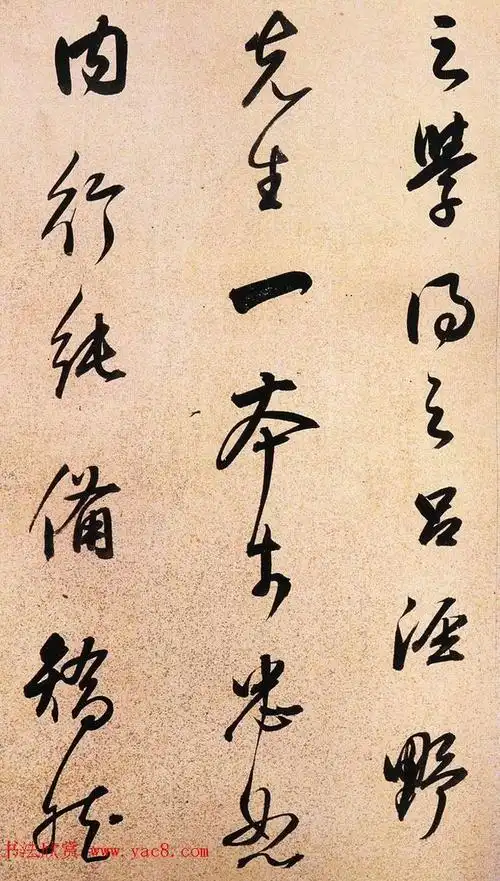 之學得之呂涇野
先生一本於忠恕
內行純備矯然
书法欣赏 www.yac8.com